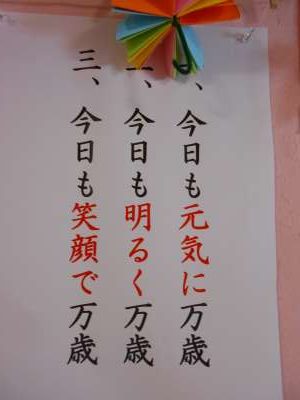 、今日も元気に万歳
、今日も明るく万歳
三、今日も笑顔で万歳